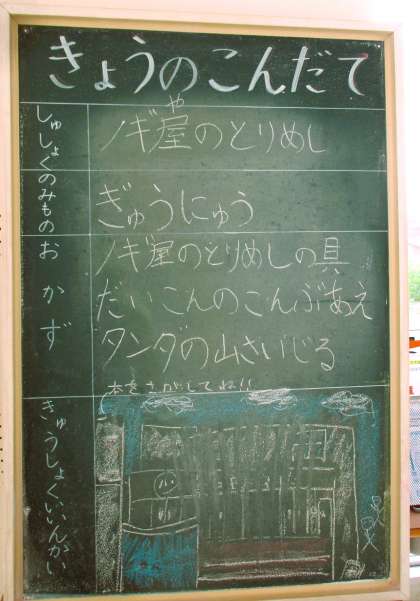 きょうのこんだて
しゅしょく
ノギ屋のとりめし
や
のみもの
ぎゅうにゅう
おかず
ノギ屋のとりめしの具
だいこんのこんぶあえ
タンダの山さいじる
本をさがしてね!!
きゅうしょくいいんかい